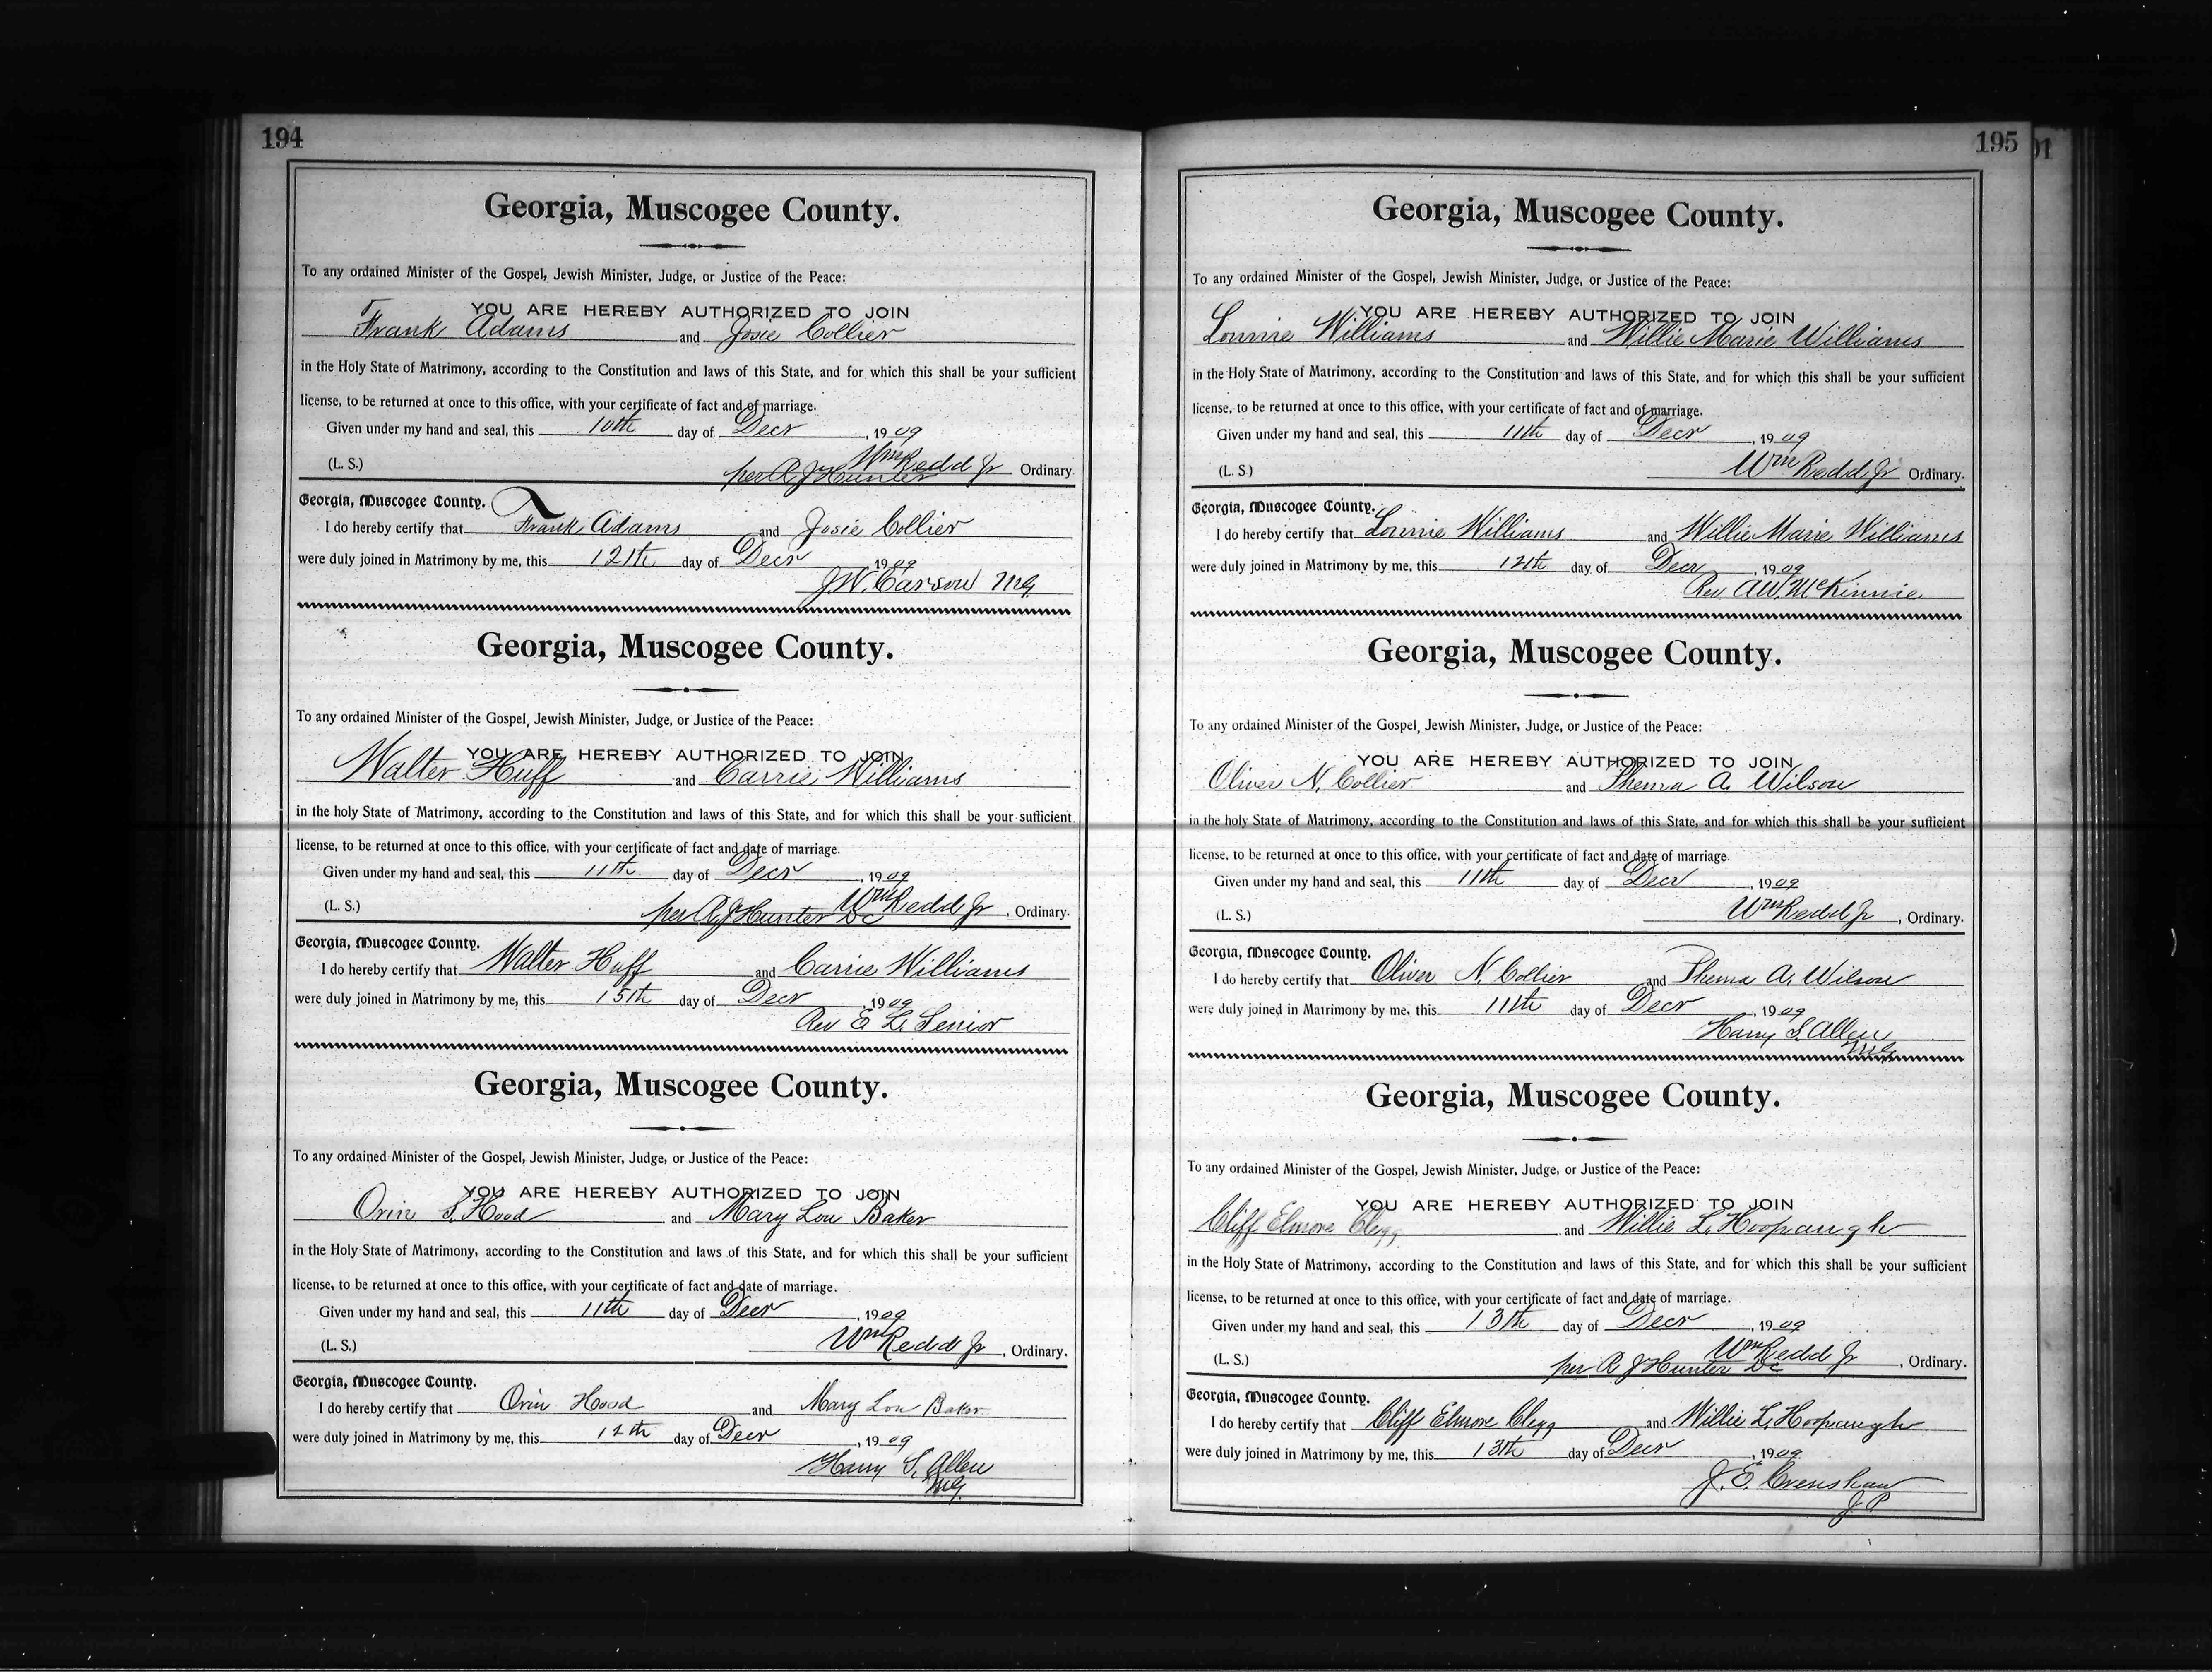 194
Georgia, Muscogee County.
To any ordained Minister of the Gospel, Jewish Minister, Judge, or Justice of the Peace:
YOU ARE HEREBY AUTHORIZED TO JOIN
Frank Adams and Josie Collier
in the Holy State of Matrimony, according to the Constitution and laws of this State, and for which this shall be your sufficient
license, to be returned at once to this office, with your certificate of fact and of marriage.
Given under my hand and seal, this 10th day of Decr, 1909
(L. S.) Wm Redd Jr Ordinary.
per A J Hunter
Georgia, Muscogee County.
I do hereby certify that Frank Adams and Josie Collier
were duly joined in Matrimony by me, this 12th day of Decr, 1909
J. W. Carson MG
Georgia, Muscogee County.
To any ordained Minister of the Gospel, Jewish Minister, Judge, or Justice of the Peace:
YOU ARE HEREBY AUTHORIZED TO JOIN
Walter Huff and Carrie Williams
in the holy State of Matrimony, according to the Constitution and laws of this State, and for which this shall be your sufficient
license, to be returned at once to this office, with your certificate of fact and date of marriage.
Given under my hand and seal, this 11th day of Decr, 1909
(L. S.) Wm Redd Jr, Ordinary.
per A J Hunter DC
Georgia, Muscogee County.
I do hereby certify that Walter Huff and Carrie Williams
were duly joined in Matrimony by me, this 15th day of Decr, 1909
Rev E L Senior
Georgia, Muscogee County.
To any ordained Minister of the Gospel, Jewish Minister, Judge, or Justice of the Peace:
YOU ARE HEREBY AUTHORIZED TO JOIN
Orin S. Hood and Mary Lou Baker
in the Holy State of Matrimony, according to the Constitution and laws of this State, and for which this shall be your sufficient
license, to be returned at once to this office, with your certificate of fact and date of marriage.
Given under my hand and seal, this 11th day of Decr, 1909
(L. S.) Wm Redd Jr, Ordinary.
Georgia, Muscogee County.
I do hereby certify that Orin Hood and Mary Lou Baker
were duly joined in Matrimony by me, this 12th day of Decr, 1909
Harry S. Allen
MG.
195
01
Georgia, Muscogee County.
To any ordained Minister of the Gospel, Jewish Minister, Judge, or Justice of the Peace:
YOU ARE HEREBY AUTHORIZED TO JOIN
Lonnie Williams and Willie Marie Williams
in the Holy State of Matrimony, according to the Constitution and laws of this State, and for which this shall be your sufficient
license, to be returned at once to this office, with your certificate of fact and of marriage.
Given under my hand and seal, this 11th day of Decr, 1909
(L. S.) Wm Redd Jr Ordinary.
Georgia, Muscogee County.
I do hereby certify that Lonnie Williams and Willie Marie Williams
were duly joined in Matrimony by me, this 12th day of Decr, 1909
Rev A. W. McKinnie
Georgia, Muscogee County.
To any ordained Minister of the Gospel, Jewish Minister, Judge, or Justice of the Peace:
YOU ARE HEREBY AUTHORIZED TO JOIN
Oliver N. Collier and Thema A. Wilson
in the holy State of Matrimony, according to the Constitution and laws of this State, and for which this shall be your sufficient
license, to be returned at once to this office, with your certificate of fact and date of marriage.
Given under my hand and seal, this 11th day of Decr, 1909
(L. S.) Wm Redd Jr, Ordinary.
Georgia, Muscogee County.
I do hereby certify that Oliver N. Collier and Thema A. Wilson
were duly joined in Matrimony by me, this 11th day of Decr, 1909
Harry S. Allen
MG
Georgia, Muscogee County.
To any ordained Minister of the Gospel, Jewish Minister, Judge, or Justice of the Peace:
YOU ARE HEREBY AUTHORIZED TO JOIN
Cliff Elmore Clegg and Willie L. Hoopaugh
in the Holy State of Matrimony, according to the Constitution and laws of this State, and for which this shall be your sufficient
license, to be returned at once to this office, with your certificate of fact and date of marriage.
Given under my hand and seal, this 13th day of Decr, 1909
(L. S.) Wm Redd Jr, Ordinary.
per A J Hunter DC
Georgia, Muscogee County.
I do hereby certify that Cliff Elmore Clegg and Willie L. Hoopaugh
were duly joined in Matrimony by me, this 13th day of Decr, 1909
J. E. Crenshaw
J P